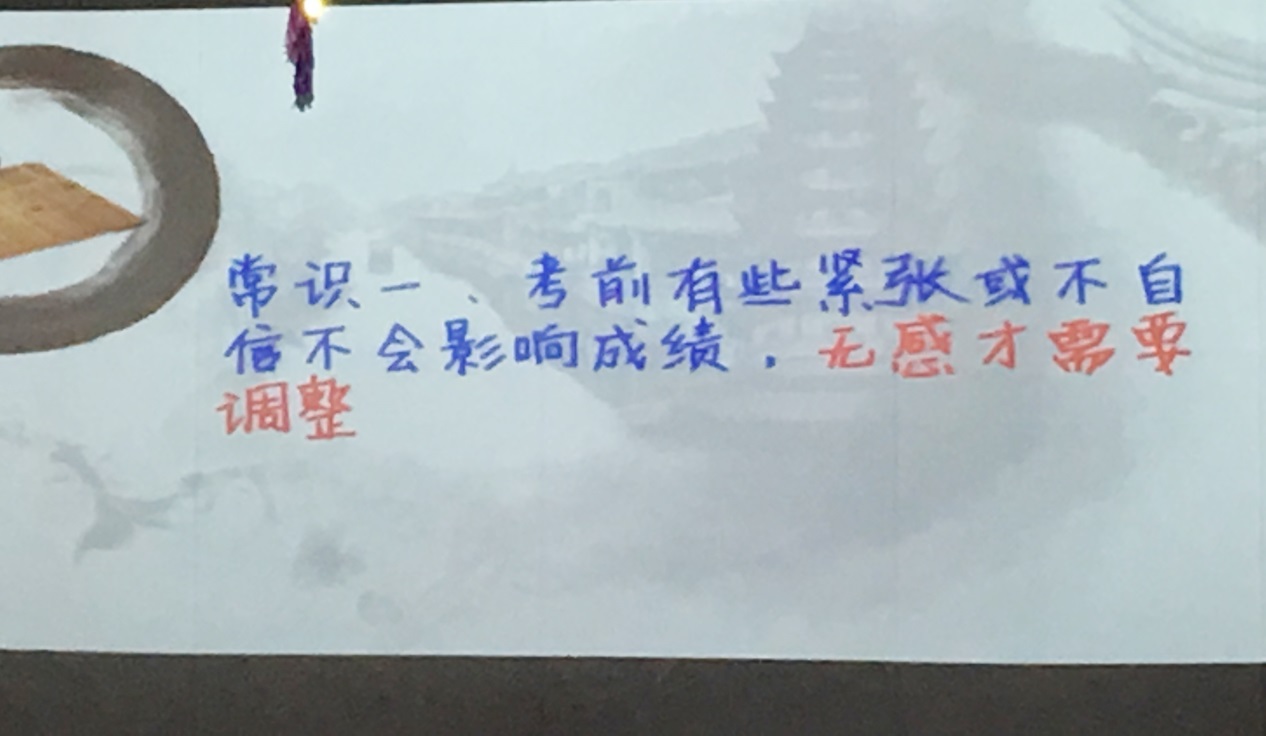 常识一、考前有些紧张或不自
信不会影响成绩，无感才需要
调整